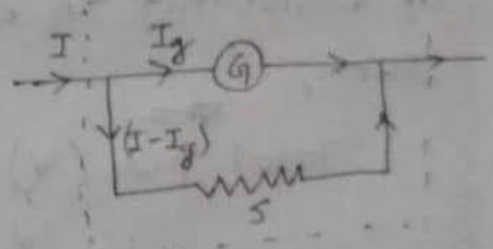 I
I_g
G
(I-I_g)
S